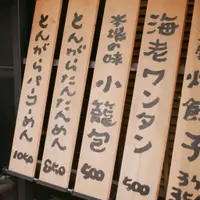 焼餃子
海老ワンタン 500
本場の味 小籠包 500
とんがらたんたんめん 850
とんがらパーコーめん 1050